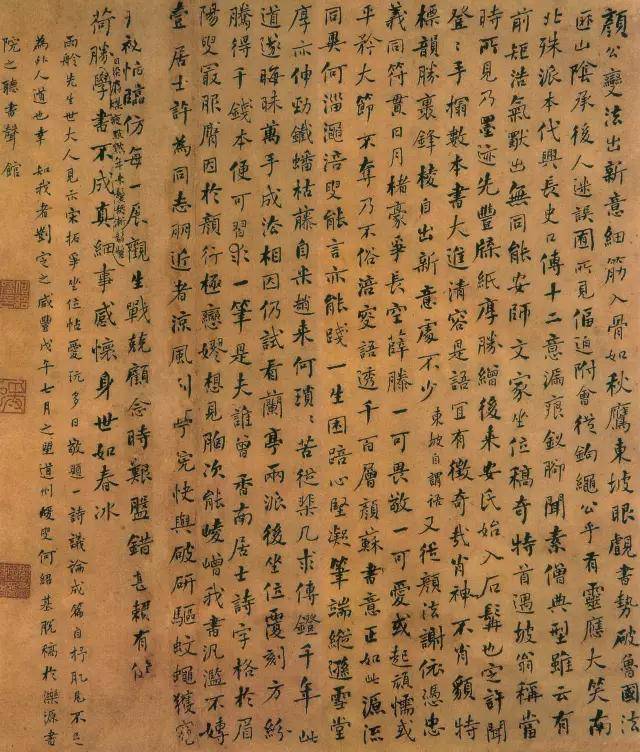 顏公變法出新意細筋入骨如秋鷹東坡眼覷書勢破魯國法
匯山陰承後人迷誤圖所見偪迫附會從鉤繩公乎有靈應大笑南
北殊派本代興長史口傳十二意漏痕釵腳聞素僧典型雖云有
前矩浩氣獸出無同能安師文家坐位稿奇特首遇坡翁稱當
時所見乃墨迹先豐縣紙摩勝繒後来安氏始入石髯也定許聞
登手搨數本書大進清容是語宜有徵奇哉肖神不肖貌特
標韻勝裹鋒棱自出新意處不少東坡自謂語又從顏法謝依憑忠
義同符貫日月楮豪爭長空薛滕一可畏敬一可愛或起頑懦或
平矜大節不奪乃不俗涪叟語透千百層顏蘇書意正如此源流
同異何淄澠涪叟能言亦能踐一生困踣心堅凝筆端縱遜雪堂
厚亦伸勁鐵蟠枯藤自米趙来何瑣瑣苦從棐几求傳鐙千年此
道遂晦昧萬手成泫相因仍試看蘭亭兩派後坐位覆刻方紛
騰得千錢本便可習求一筆是夫誰曾香南居士詩字格於眉
陽叟最服膺因於顏行極戀嫪想見胸次能崚嶒我書汎濫不專
壹居士許為同志朋近者涼風到學究快與破研驅蚊蠅獲窺
秘帖臨仿每一展觀生戰兢顧念時艱盤錯甚賴有
荷勝學書不成真細事感懷身世如春冰
雨舲先生世大人見示宋拓爭坐位帖愛玩多日敬題一詩議論成篇自抒肊見不足
為外人道也幸如我者劉宮之咸豐戊午七月之望道州愚叟何紹基脫稿於濼源書
院之聽書聲館